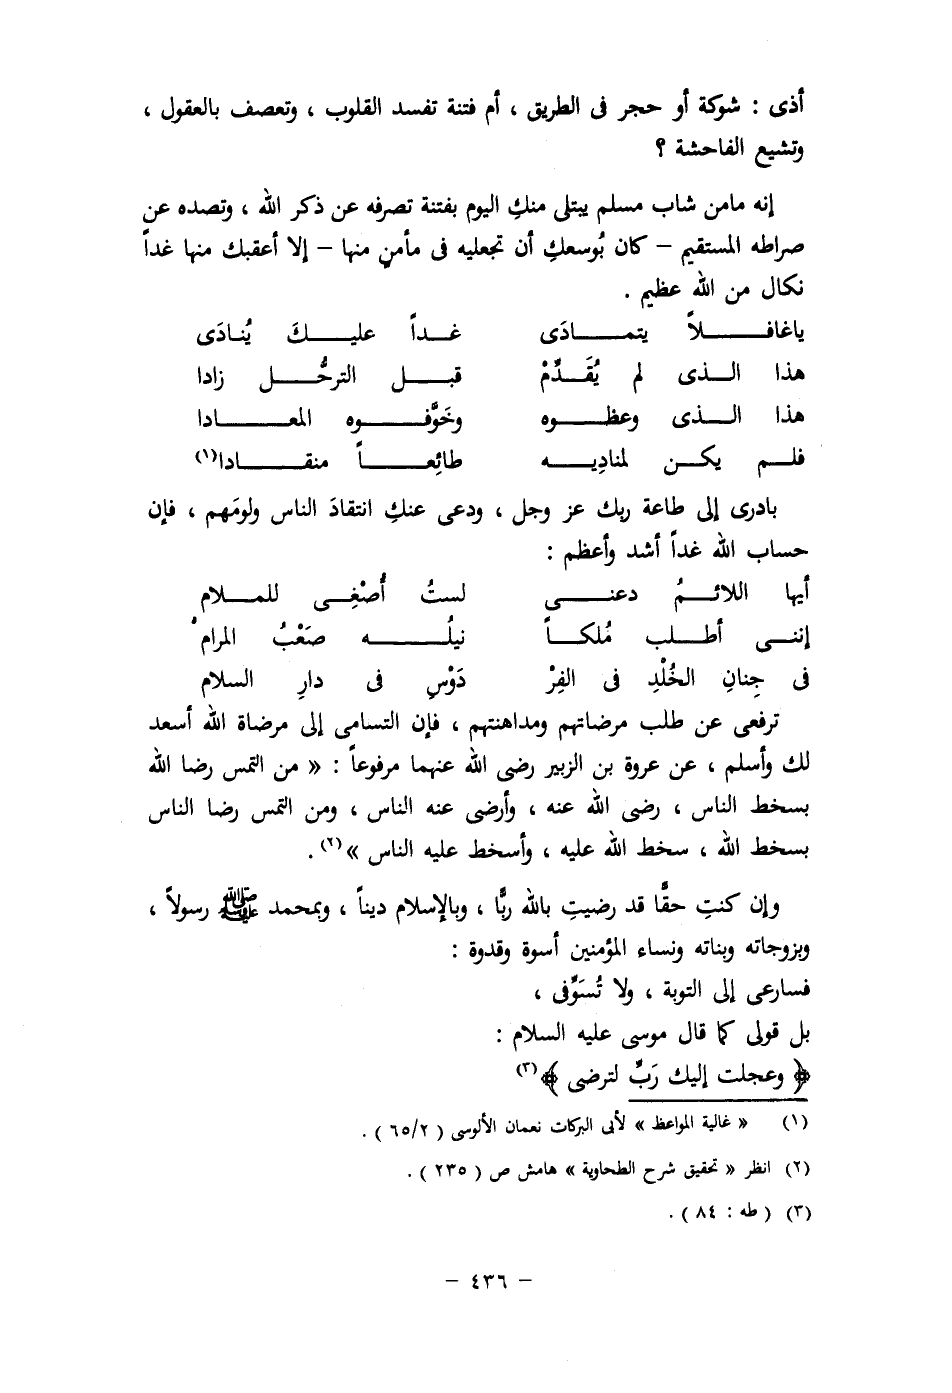 أذى : شوكة أو حجر فى الطريق ، أم فتنة تفسد القلوب ، وتعصف بالعقول ،
وتشيع الفاحشة ؟
إنه مامن شاب مسلم يبتلى منكِ اليوم بفتنة تصرفه عن ذكر الله ، وتصده عن
صراطه المستقيم – كان بُوسعكِ أن تجعليه فى مأمنٍ منها – إلا أعقبك منها غداً
نكال من الله عظيم .
ياغافــلاً يتمــادَى غــداً عليــكَ يُنــادَى
هذا الــذى لم يُقَــدِّمْ قبــل الترحُّــل زادا
هذا الــذى وعظــوه وخَوَّفــوه المعــادا
فلــم يكــن لمناديــه طائِعــاً منقــادا(١)
بادرى إلى طاعة ربك عز وجل ، ودعى عنكِ انتقادَ الناس ولومَهم ، فإن
حساب الله غداً أشد وأعظم :
أيها اللائــمُ دعنــى لستُ أُصْغِــى للمــلام
إننــى أطلــب مُلكــاً نيلُــه صَعْبُ المرام
فى جِنانِ الخُلْدِ فى الفِرْ دَوْسِ فى دارِ السلام
ترفعى عن طلب مرضاتهم ومداهنتهم ، فإن التسامى إلى مرضاة الله أسعد
لك وأسلم ، عن عروة بن الزبير رضى الله عنهما مرفوعاً : « من التمس رضا الله
بسخط الناس ، رضى الله عنه ، وأرضى عنه الناس ، ومن التمس رضا الناس
بسخط الله ، سخط الله عليه ، وأسخط عليه الناس »(٢) .
وإن كنتِ حقًّا قد رضيتِ بالله ربًّا ، وبالإسلام ديناً ، وبمحمد ﷺ رسولاً ،
وبزوجاته وبناته ونساء المؤمنين أسوة وقدوة :
فسارعى إلى التوبة ، ولا تُسَوِّفى ،
بل قولى كما قال موسى عليه السلام :
﴿ وعجلت إليك رَبِّ لترضى ﴾(٣)
(١) « غالية المواعظ » لأبى البركات نعمان الألوسى ( ٦٥/٢ ) .
(٢) انظر « تحقيق شرح الطحاوية » هامش ص ( ٢٣٥ ) .
(٣) ( طه : ٨٤ ) .
– ٤٣٦ –